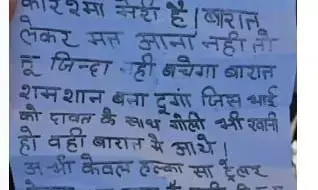 करिश्मा मेरी है। बारात
लेकर मत आना नही तो
तू जिन्दा नही बचेगा बारात
शमशान बना दूंगा जिस भाई
को दावत के साथ गोली भी खानी
हो वही बारात मे आये।
अभी केवल हल्का सा ट्रेलर